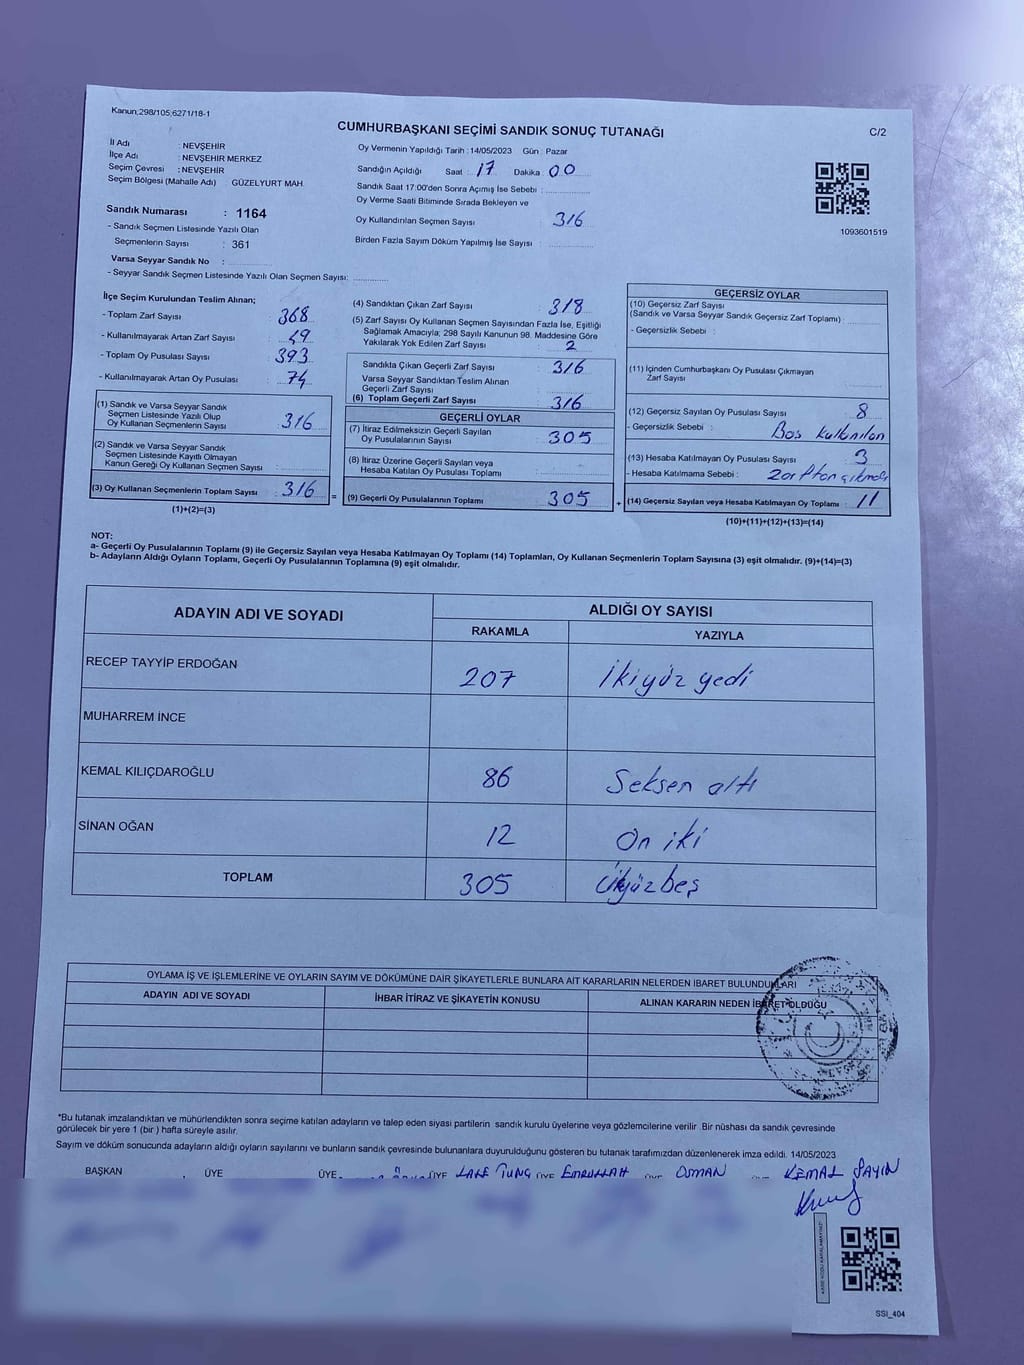 Kanun;298/105;6271/18-1
CUMHURBAŞKANI SEÇİMİ SANDIK SONUÇ TUTANAĞI
C/2
İl Adı : NEVŞEHİR
İlçe Adı : NEVŞEHİR MERKEZ
Seçim Çevresi : NEVŞEHİR
Seçim Bölgesi (Mahalle Adı) GÜZELYURT MAH.
Sandık Numarası : 1164
- Sandık Seçmen Listesinde Yazılı Olan
Seçmenlerin Sayısı : 361
Varsa Seyyar Sandık No :
- Seyyar Sandık Seçmen Listesinde Yazılı Olan Seçmen Sayısı:
Oy Vermenin Yapıldığı Tarih :14/05/2023 Gün : Pazar
Sandığın Açıldığı Saat : 17 Dakika 00
Sandık Saat 17:00'den Sonra Açımış İse Sebebi :
Oy Verme Saati Bitiminde Sırada Bekleyen ve
Oy Kullandırılan Seçmen Sayısı 316
Birden Fazla Sayım Döküm Yapılmış İse Sayısı :
1093601519
İlçe Seçim Kurulundan Teslim Alınan;
- Toplam Zarf Sayısı : 368
- Kullanılmayarak Artan Zarf Sayısı : 49
- Toplam Oy Pusulası Sayısı : 393
- Kullanılmayarak Artan Oy Pusulası : 74
(1) Sandık ve Varsa Seyyar Sandık
Seçmen Listesinde Yazılı Olup
Oy Kullanan Seçmenlerin Sayısı : 316
(2) Sandık ve Varsa Seyyar Sandık
Seçmen Listesinde Kayıtlı Olmayan
Kanun Gereği Oy Kullanan Seçmen Sayısı :
(3) Oy Kullanan Seçmenlerin Toplam Sayısı : 316
(1)+(2)=(3)
(4) Sandıktan Çıkan Zarf Sayısı : 318
(5) Zarf Sayısı Oy Kullanan Seçmen Sayısından Fazla İse, Eşitliği
Sağlamak Amacıyla; 298 Sayılı Kanunun 98. Maddesine Göre
Yakılarak Yok Edilen Zarf Sayısı : 2
Sandıkta Çıkan Geçerli Zarf Sayısı : 316
Varsa Seyyar Sandıktan Teslim Alınan
Geçerli Zarf Sayısı :
(6) Toplam Geçerli Zarf Sayısı : 316
GEÇERLİ OYLAR
(7) İtiraz Edilmeksizin Geçerli Sayılan
Oy Pusulalarının Sayısı : 305
(8) İtiraz Üzerine Geçerli Sayılan veya
Hesaba Katılan Oy Pusulası Toplamı :
(9) Geçerli Oy Pusulalarının Toplamı : 305
GEÇERSİZ OYLAR
(10) Geçersiz Zarf Sayısı
(Sandık ve Varsa Seyyar Sandık Geçersiz Zarf Toplamı) :
- Geçersizlik Sebebi :
(11) İçinden Cumhurbaşkanı Oy Pusulası Çıkmayan
Zarf Sayısı :
(12) Geçersiz Sayılan Oy Pusulası Sayısı : 8
- Geçersizlik Sebebi : Boş kullanılan
(13) Hesaba Katılmayan Oy Pusulası Sayısı : 3
- Hesaba Katılmama Sebebi : Zarftan çıkmadı
(14) Geçersiz Sayılan veya Hesaba Katılmayan Oy Toplamı : 11
(10)+(11)+(12)+(13)=(14)
NOT:
a- Geçerli Oy Pusulalarının Toplamı (9) ile Geçersiz Sayılan veya Hesaba Katılmayan Oy Toplamı (14) Toplamları, Oy Kullanan Seçmenlerin Toplam Sayısına (3) eşit olmalıdır. (9)+(14)=(3)
b- Adayların Aldığı Oyların Toplamı, Geçerli Oy Pusulalarının Toplamına (9) eşit olmalıdır.
ADAYIN ADI VE SOYADI ALDIĞI OY SAYISI
RAKAMLA YAZIYLA
RECEP TAYYİP ERDOĞAN 207 İkiyüz yedi
MUHARREM İNCE
KEMAL KILIÇDAROĞLU 86 Seksen altı
SİNAN OĞAN 12 On iki
TOPLAM 305 Üçyüz beş
OYLAMA İŞ VE İŞLEMLERİNE VE OYLARIN SAYIM VE DÖKÜMÜNE DAİR ŞİKAYETLERLE BUNLARA AİT KARARLARIN NELERDEN İBARET BULUNDUKLARI
ADAYIN ADI VE SOYADI İHBAR İTİRAZ VE ŞİKAYETİN KONUSU ALINAN KARARIN NEDEN İBARET OLDUĞU
*Bu tutanak imzalandıktan ve mühürlendikten sonra seçime katılan adayların ve talep eden siyasi partilerin sandık kurulu üyelerine veya gözlemcilerine verilir .Bir nüshası da sandık çevresinde
görülecek bir yere 1 (bir ) hafta süreyle asılır.
Sayım ve döküm sonucunda adayların aldığı oyların sayılarını ve bunların sandık çevresinde bulunanlara duyurulduğunu gösteren bu tutanak tarafımızdan düzenlenerek imza edildi. 14/05/2023
BAŞKAN ÜYE ÜYE ÜYE LALE TUNÇ ÜYE EMRULLAH ÜYE OSMAN ÜYE KEMAL SAYIN
SSI_404